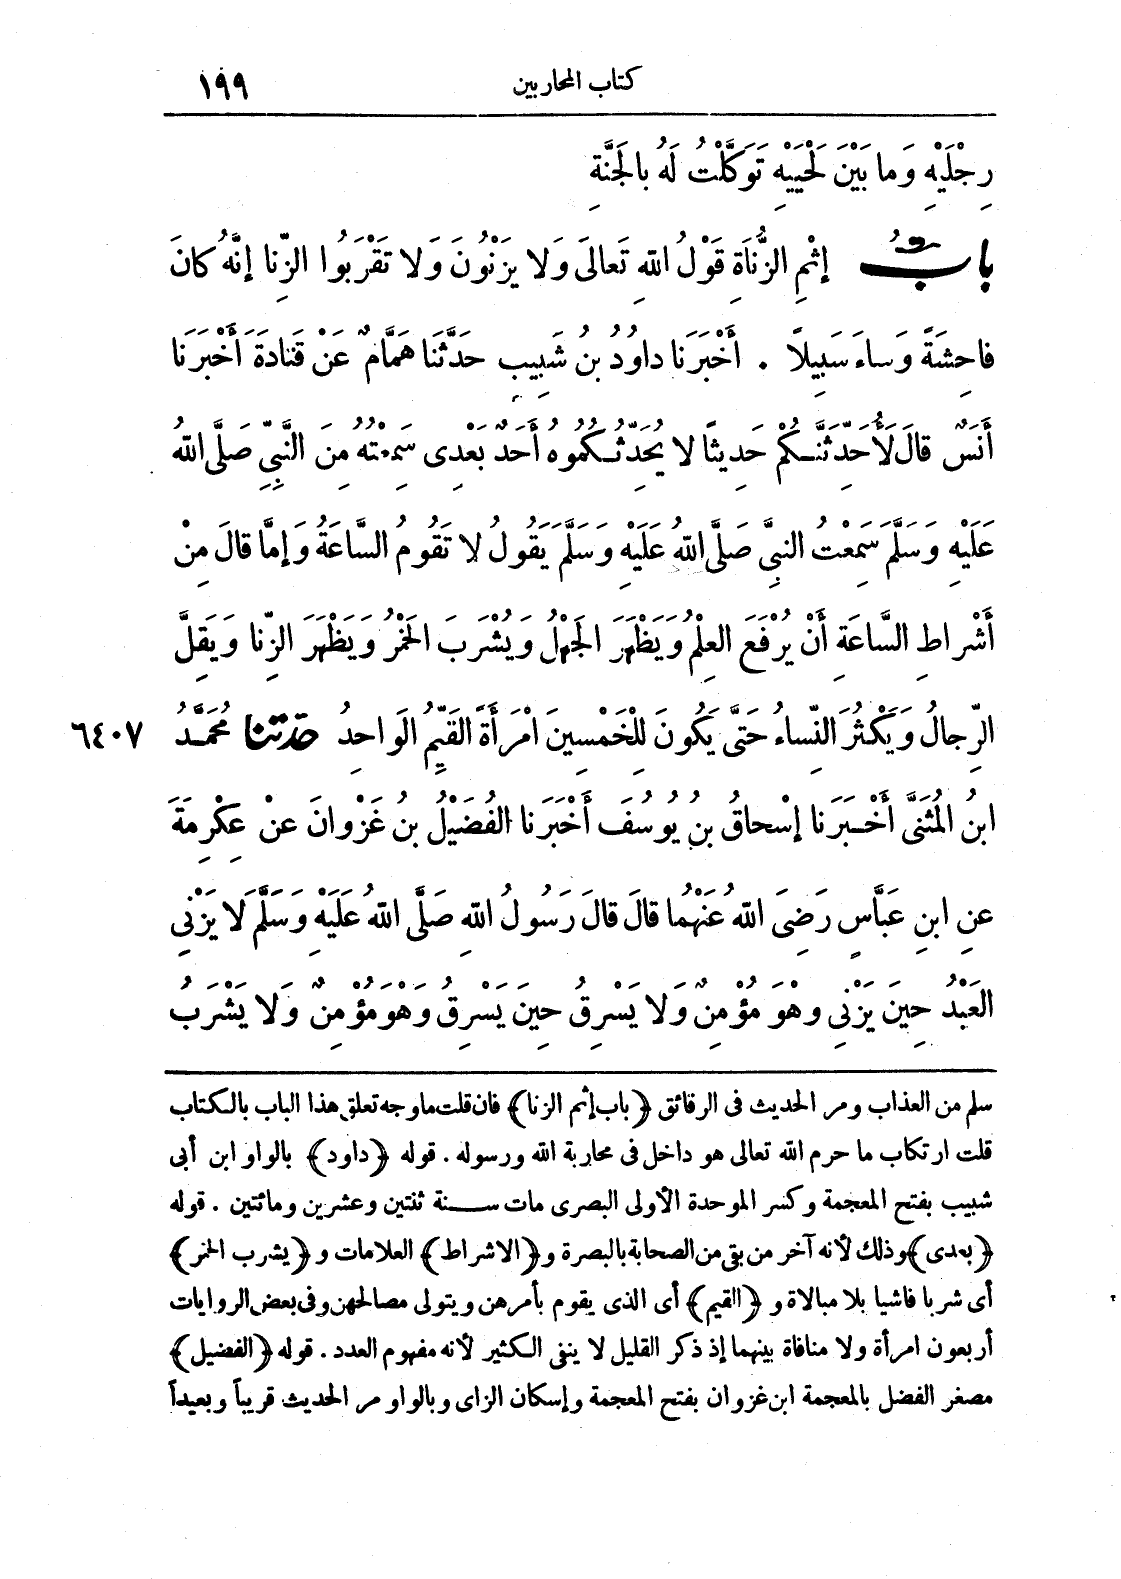 كتاب المحاربين ١٩٩
رِجْلَيْهِ وَما بَيْنَ لَحْيَيْهِ تَوَكَّلْتُ لَهُ بِالْجَنَّةِ
بابُ إِثْمِ الزُّنَاةِ قَوْلُ اللهِ تَعالَى وَلا يَزْنُونَ وَلا تَقْرَبُوا الزِّنا إِنَّهُ كانَ
فاحِشَةً وَساءَ سَبِيلاً . أَخْبَرَنا داوُدُ بنُ شَبِيبٍ حَدَّثَنا هَمَّامٌ عَنْ قَتادَةَ أَخْبَرَنا
أَنَسٌ قالَ لَأُحَدِّثَنَّكُمْ حَدِيثًا لا يُحَدِّثُكُمُوهُ أَحَدٌ بَعْدِى سَمِعْتُهُ مِنَ النَّبِيِّ صَلَّى اللهُ
عَلَيْهِ وَسَلَّمَ سَمِعْتُ النبِيَّ صَلَّى اللهُ عَلَيْهِ وَسَلَّمَ يَقُولُ لا تَقُومُ السَّاعَةُ وَإِمَّا قالَ مِنْ
أَشْراطِ السَّاعَةِ أَنْ يُرْفَعَ العِلْمُ وَيَظْهَرَ الجَهْلُ وَيُشْرَبَ الخَمْرُ وَيَظْهَرَ الزِّنا وَيَقِلَّ
الرِّجالُ وَيَكْثُرَ النِّساءُ حَتَّى يَكُونَ لِلْخَمْسِينَ امْرَأَةً القَيِّمُ الوَاحِدُ حدثنا مُحَمَّدُ ٦٤٠٧
ابنُ المُثَنَّى أَخْبَرَنا إِسْحاقُ بنُ يُوسُفَ أَخْبَرَنا الفُضَيْلُ بنُ غَزْوانَ عَنْ عِكْرِمَةَ
عنِ ابنِ عَبَّاسٍ رَضِىَ اللهُ عَنْهُما قالَ قالَ رَسُولُ اللهِ صَلَّى اللهُ عَلَيْهِ وَسَلَّمَ لَا يَزْنِى
العَبْدُ حِينَ يَزْنِى وهْوَ مُؤْمِنٌ وَلا يَسْرِقُ حِينَ يَسْرِقُ وَهْوَ مُؤْمِنٌ وَلا يَشْرَبُ
سلم من العذاب ومر الحديث فى الرقائق ﴿باب إثم الزنا﴾ فان قلت ماوجه تعلق هذا الباب بالكتاب
قلت ارتكاب ما حرم الله تعالى هو داخل فى محاربة الله ورسوله . قوله ﴿داود﴾ بالواو ابن أبى
شبيب بفتح المعجمة وكسر الموحدة الأولى البصرى مات سنة ثنتين وعشرين ومائتين . قوله
﴿بعدى﴾ وذلك لأنه آخر من بقى من الصحابة بالبصرة و﴿الاشراط﴾ العلامات و﴿يشرب الخمر﴾
أى شربا فاشيا بلا مبالاة و﴿القيم﴾ أى الذى يقوم بأمرهن ويتولى مصالحهن وفى بعض الروايات
أربعون امرأة ولا منافاة بينهما إذ ذكر القليل لا ينفى الكثير لأنه مفهوم العدد . قوله ﴿الفضيل﴾
مصغر الفضل بالمعجمة ابن غزوان بفتح المعجمة وإسكان الزاى وبالواو مر الحديث قريباً وبعيداً